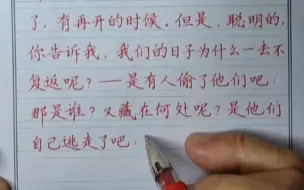 了，有再开的时候．但是，聪明的，
你告诉我，我们的日子为什么一去不
复返呢？——是有人偷了他们吧：
那是谁？又藏在何处呢？是他们
自己逃走了吧：